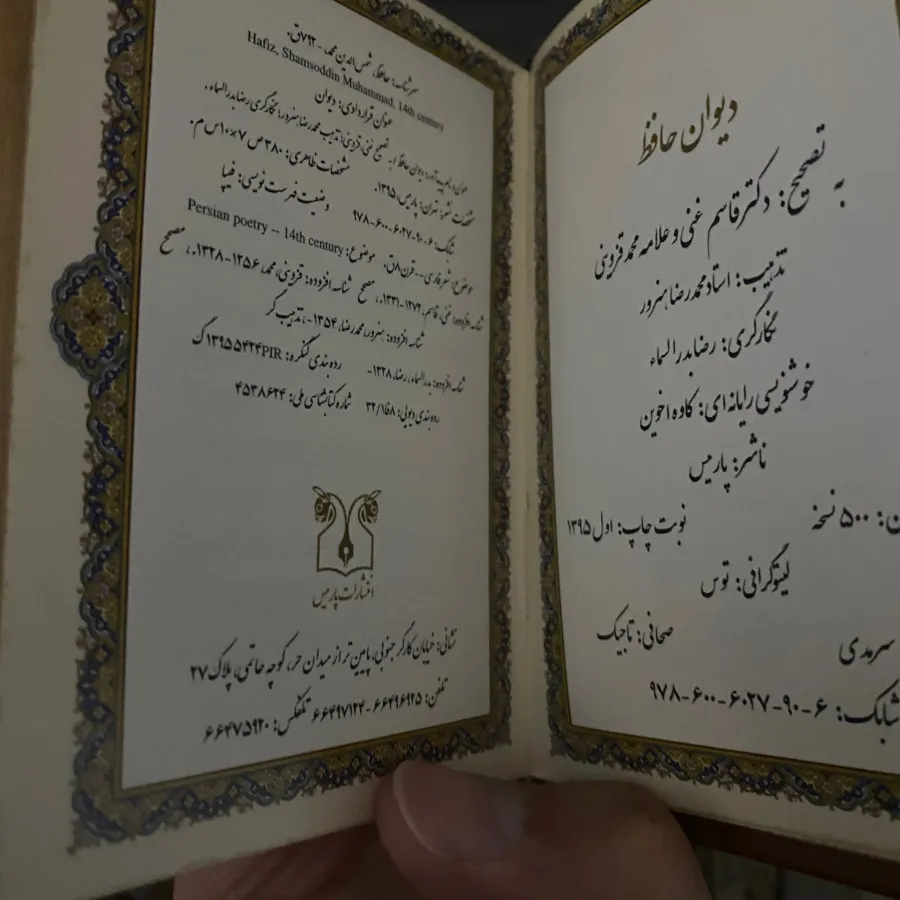 دیوان حافظ
به تصحیح: دکتر قاسم غنی و علامه محمد قزوینی
تذهیب: استاد محمدرضا هنرور
نگارگری: رضا بدرالسماء
خوشنویسی رایانه‌ای: کاوه اخوین
ناشر: پارمیس
نوبت چاپ: اول ۱۳۹۵
ن: ۵۰۰ نسخه
لیتوگرافی: توس
سرمدی
صحافی: تاجیک
شابک: ۶-۹۰-۶۰۲۷-۶۰۰-۹۷۸
سرشناسه: حافظ، شمس‌الدین محمد، -۷۹۲ق.
Hafiz, Shamsoddin Muhammad, 14th century
عنوان قراردادی: دیوان
عنوان و نام پدیدآور: دیوان حافظ / به تصحیح غنی، قزوینی؛ تذهیب محمدرضا هنرور؛ نگارگری رضا بدرالسماء.
مشخصات نشر: تهران: پارمیس، ۱۳۹۵. مشخصات ظاهری: ۳۸۰ ص ۷×۱۰ س م.
شابک: ۶-۹۰-۶۰۲۷-۶۰۰-۹۷۸ وضعیت فهرست نویسی: فیپا
موضوع: شعر فارسی -- قرن ۸ق. موضوع: Persian poetry -- 14th century
شناسه افزوده: غنی، قاسم، ۱۲۷۲-۱۳۳۱.، مصحح شناسه افزوده: قزوینی، محمد، ۱۲۵۶-۱۳۲۸.، مصحح
شناسه افزوده: هنرور، محمدرضا، ۱۳۵۴-، تذهیب گر
شناسه افزوده: بدرالسماء، رضا، ۱۳۲۸- رده بندی کنگره: PIR۵۴۲۴ ۱۳۹۵ ک
رده بندی دیویی: ۸فا۱/۳۲ شماره کتابشناسی ملی: ۴۵۳۸۶۲۴
انتشارات پارمیس
نشانی: خیابان کارگر جنوبی، پایین تر از میدان حر، کوچه حاتمی، پلاک ۲۷
تلفن: ۶۶۴۹۶۹۲۵-۶۶۴۹۷۱۲۴ تلفکس: ۶۶۴۷۵۹۲۰